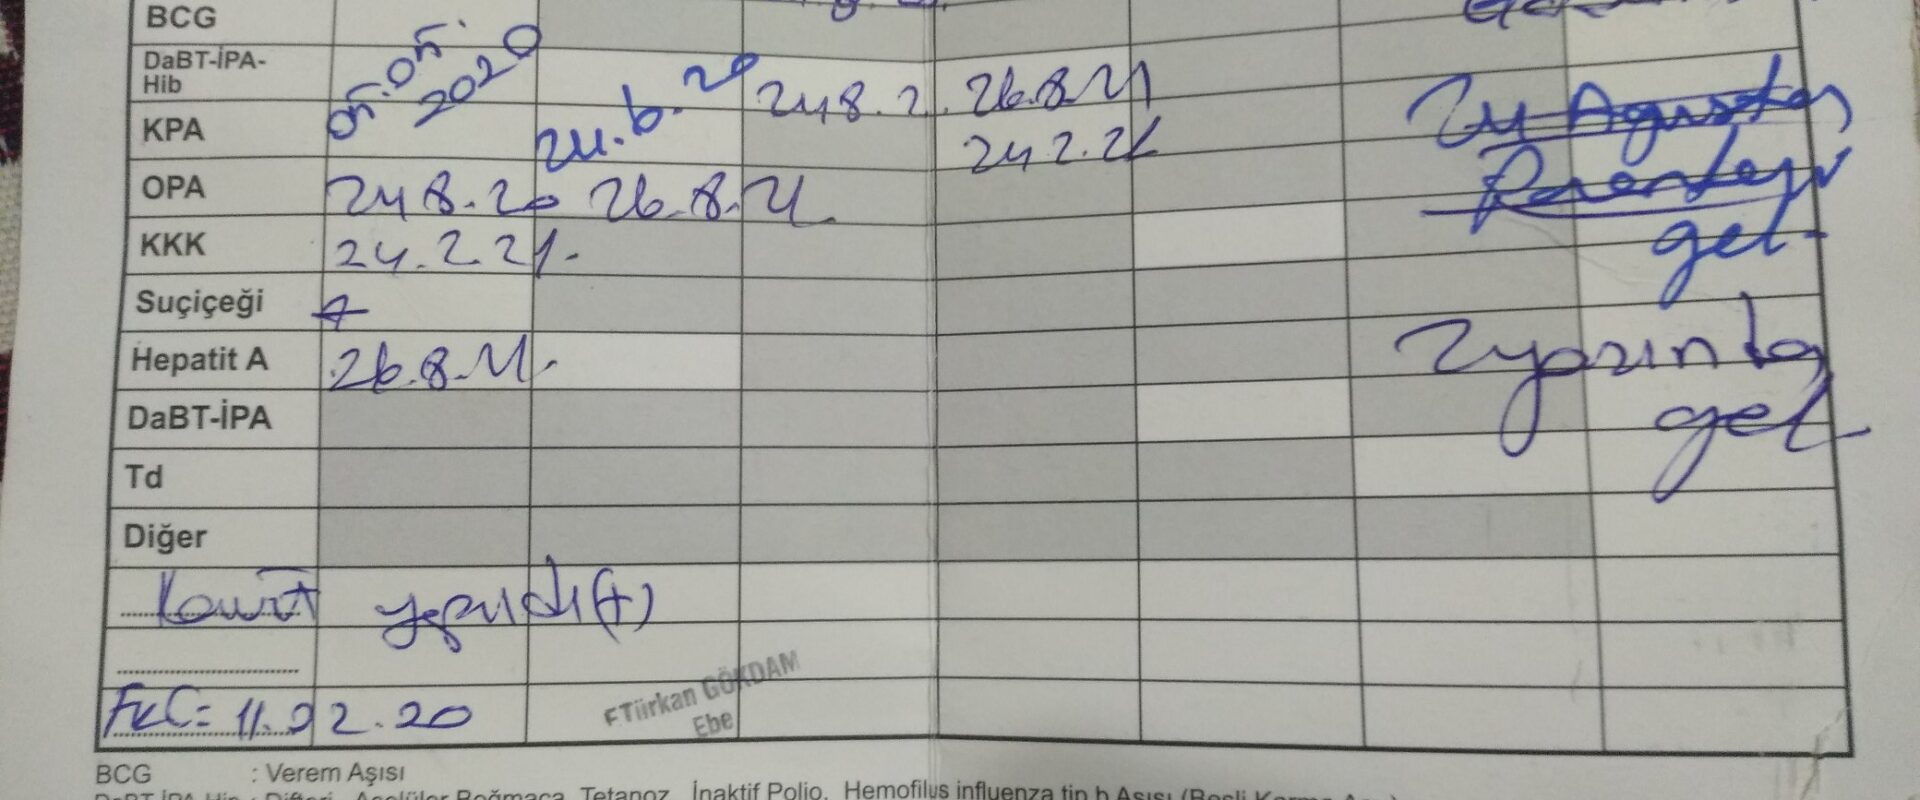 BCG
DaBT-İPA-
Hib
05.05.
2020
24.8.2
26.8.21
KPA
24.6.20
24.2.21
24 Ağustos
OPA
248.20
26.8.21
KKK
24.2.21.
gel-
Suçiçeği
Hepatit A
26.8.21.
2 yaşında
DaBT-İPA
gel-
Td
Diğer
yapıldı(+)
FKC= 11.02.20
F.Türkan GÖKDAM
Ebe
BCG : Verem Aşısı
DaBT-İPA-Hip : Difteri, Aselüler Boğmaca, Tetanoz, İnaktif Polio, Hemofilus influenza tip b Aşısı (Beşli Karma Aşı)